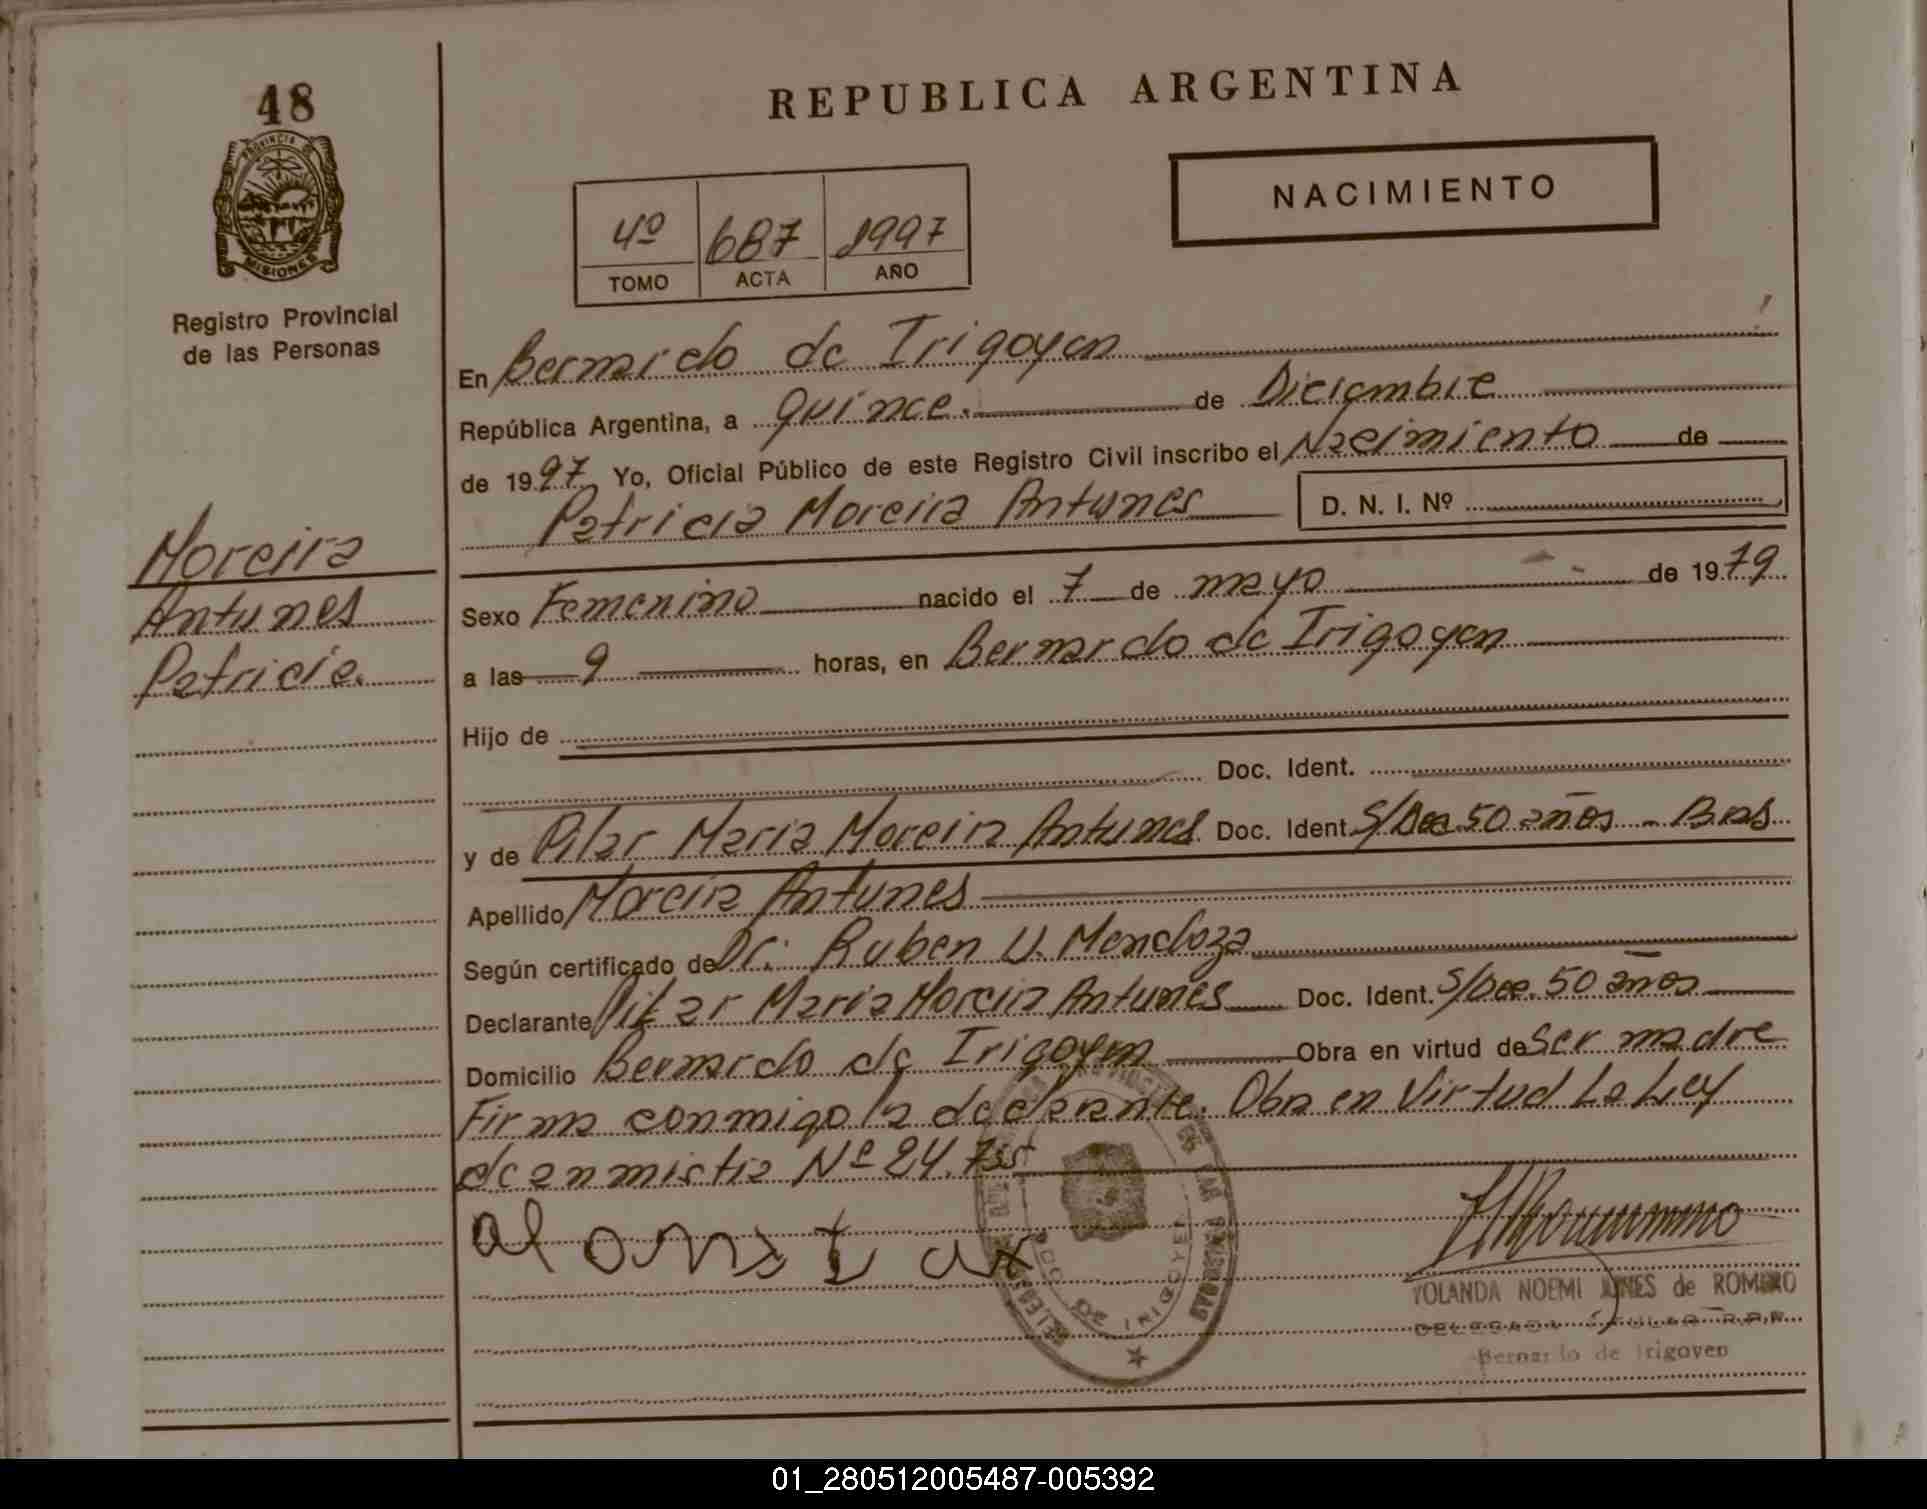 48
PROVINCIA DE
MISIONES
Registro Provincial
de las Personas
Moreira
Antunes
Patricia.
REPUBLICA ARGENTINA
NACIMIENTO
4º 687 1997
TOMO ACTA AÑO
En Bernardo de Irigoyen
República Argentina, a quince. de Diciembre
de 1997 Yo, Oficial Público de este Registro Civil inscribo el Nacimiento de
Patricia Moreira Antunes D. N. I. Nº
Sexo Femenino nacido el 7 de mayo de 1979
a las 9 horas, en Bernardo de Irigoyen
Hijo de
Doc. Ident.
y de Pilar Maria Moreira Antunes Doc. Ident. S/Doc. 50 años - Bras
Apellido Moreira Antunes
Según certificado de Dr. Ruben U. Mendoza
Declarante Pilar Maria Moreira Antunes Doc. Ident. S/Doc. 50 años
Domicilio Bernardo de Irigoyen Obra en virtud de Ser madre
Firma conmigo la declarante. Obra en Virtud La Ley
de anmistia Nº 24.755
YOLANDA NOEMI JUNES de ROMERO
DELEGADA TITULAR R.P.P.
Bernardo de Irigoyen
DE LAS PERSONAS
IRIGOYEN
01_280512005487-005392